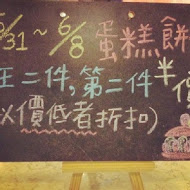 5/31～6/8 蛋糕餅
任二件,第二件半價
以價低者折扣)